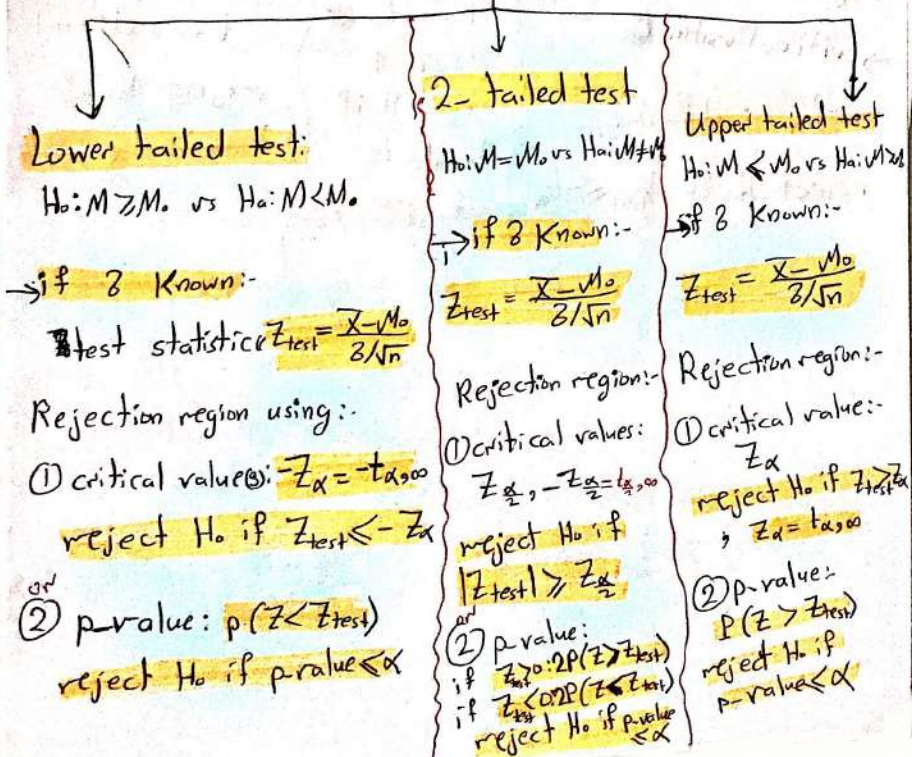 Lower tailed test:
H₀: M ≥ M₀ vs Ha: M < M₀
→ if δ Known:-
test statistics Z_test = (X̄ - M₀) / (δ/√n)
Rejection region using:-
① critical value(s): -Z_α = -t_α,∞
reject H₀ if Z_test ≤ -Z_α
or
② p-value: p(Z < Z_test)
reject H₀ if p-value ≤ α
2- tailed test
H₀: M = M₀ vs Ha: M ≠ M₀
→ if δ Known:-
Z_test = (X̄ - M₀) / (δ/√n)
Rejection region:-
① critical values:
Z_α/2, -Z_α/2 = t_α/2,∞
reject H₀ if
|Z_test| ≥ Z_α/2
or
② p-value:
if Z_test > 0: 2P(Z > Z_test)
if Z_test < 0: 2P(Z < Z_test)
reject H₀ if p-value
≤ α
Upper tailed test
H₀: M ≤ M₀ vs Ha: M > M₀
→ if δ Known:-
Z_test = (X̄ - M₀) / (δ/√n)
Rejection region:-
① critical value:-
Z_α
reject H₀ if Z_test ≥ Z_α
, Z_α = t_α,∞
② p-value:-
P(Z > Z_test)
reject H₀ if
p-value ≤ α